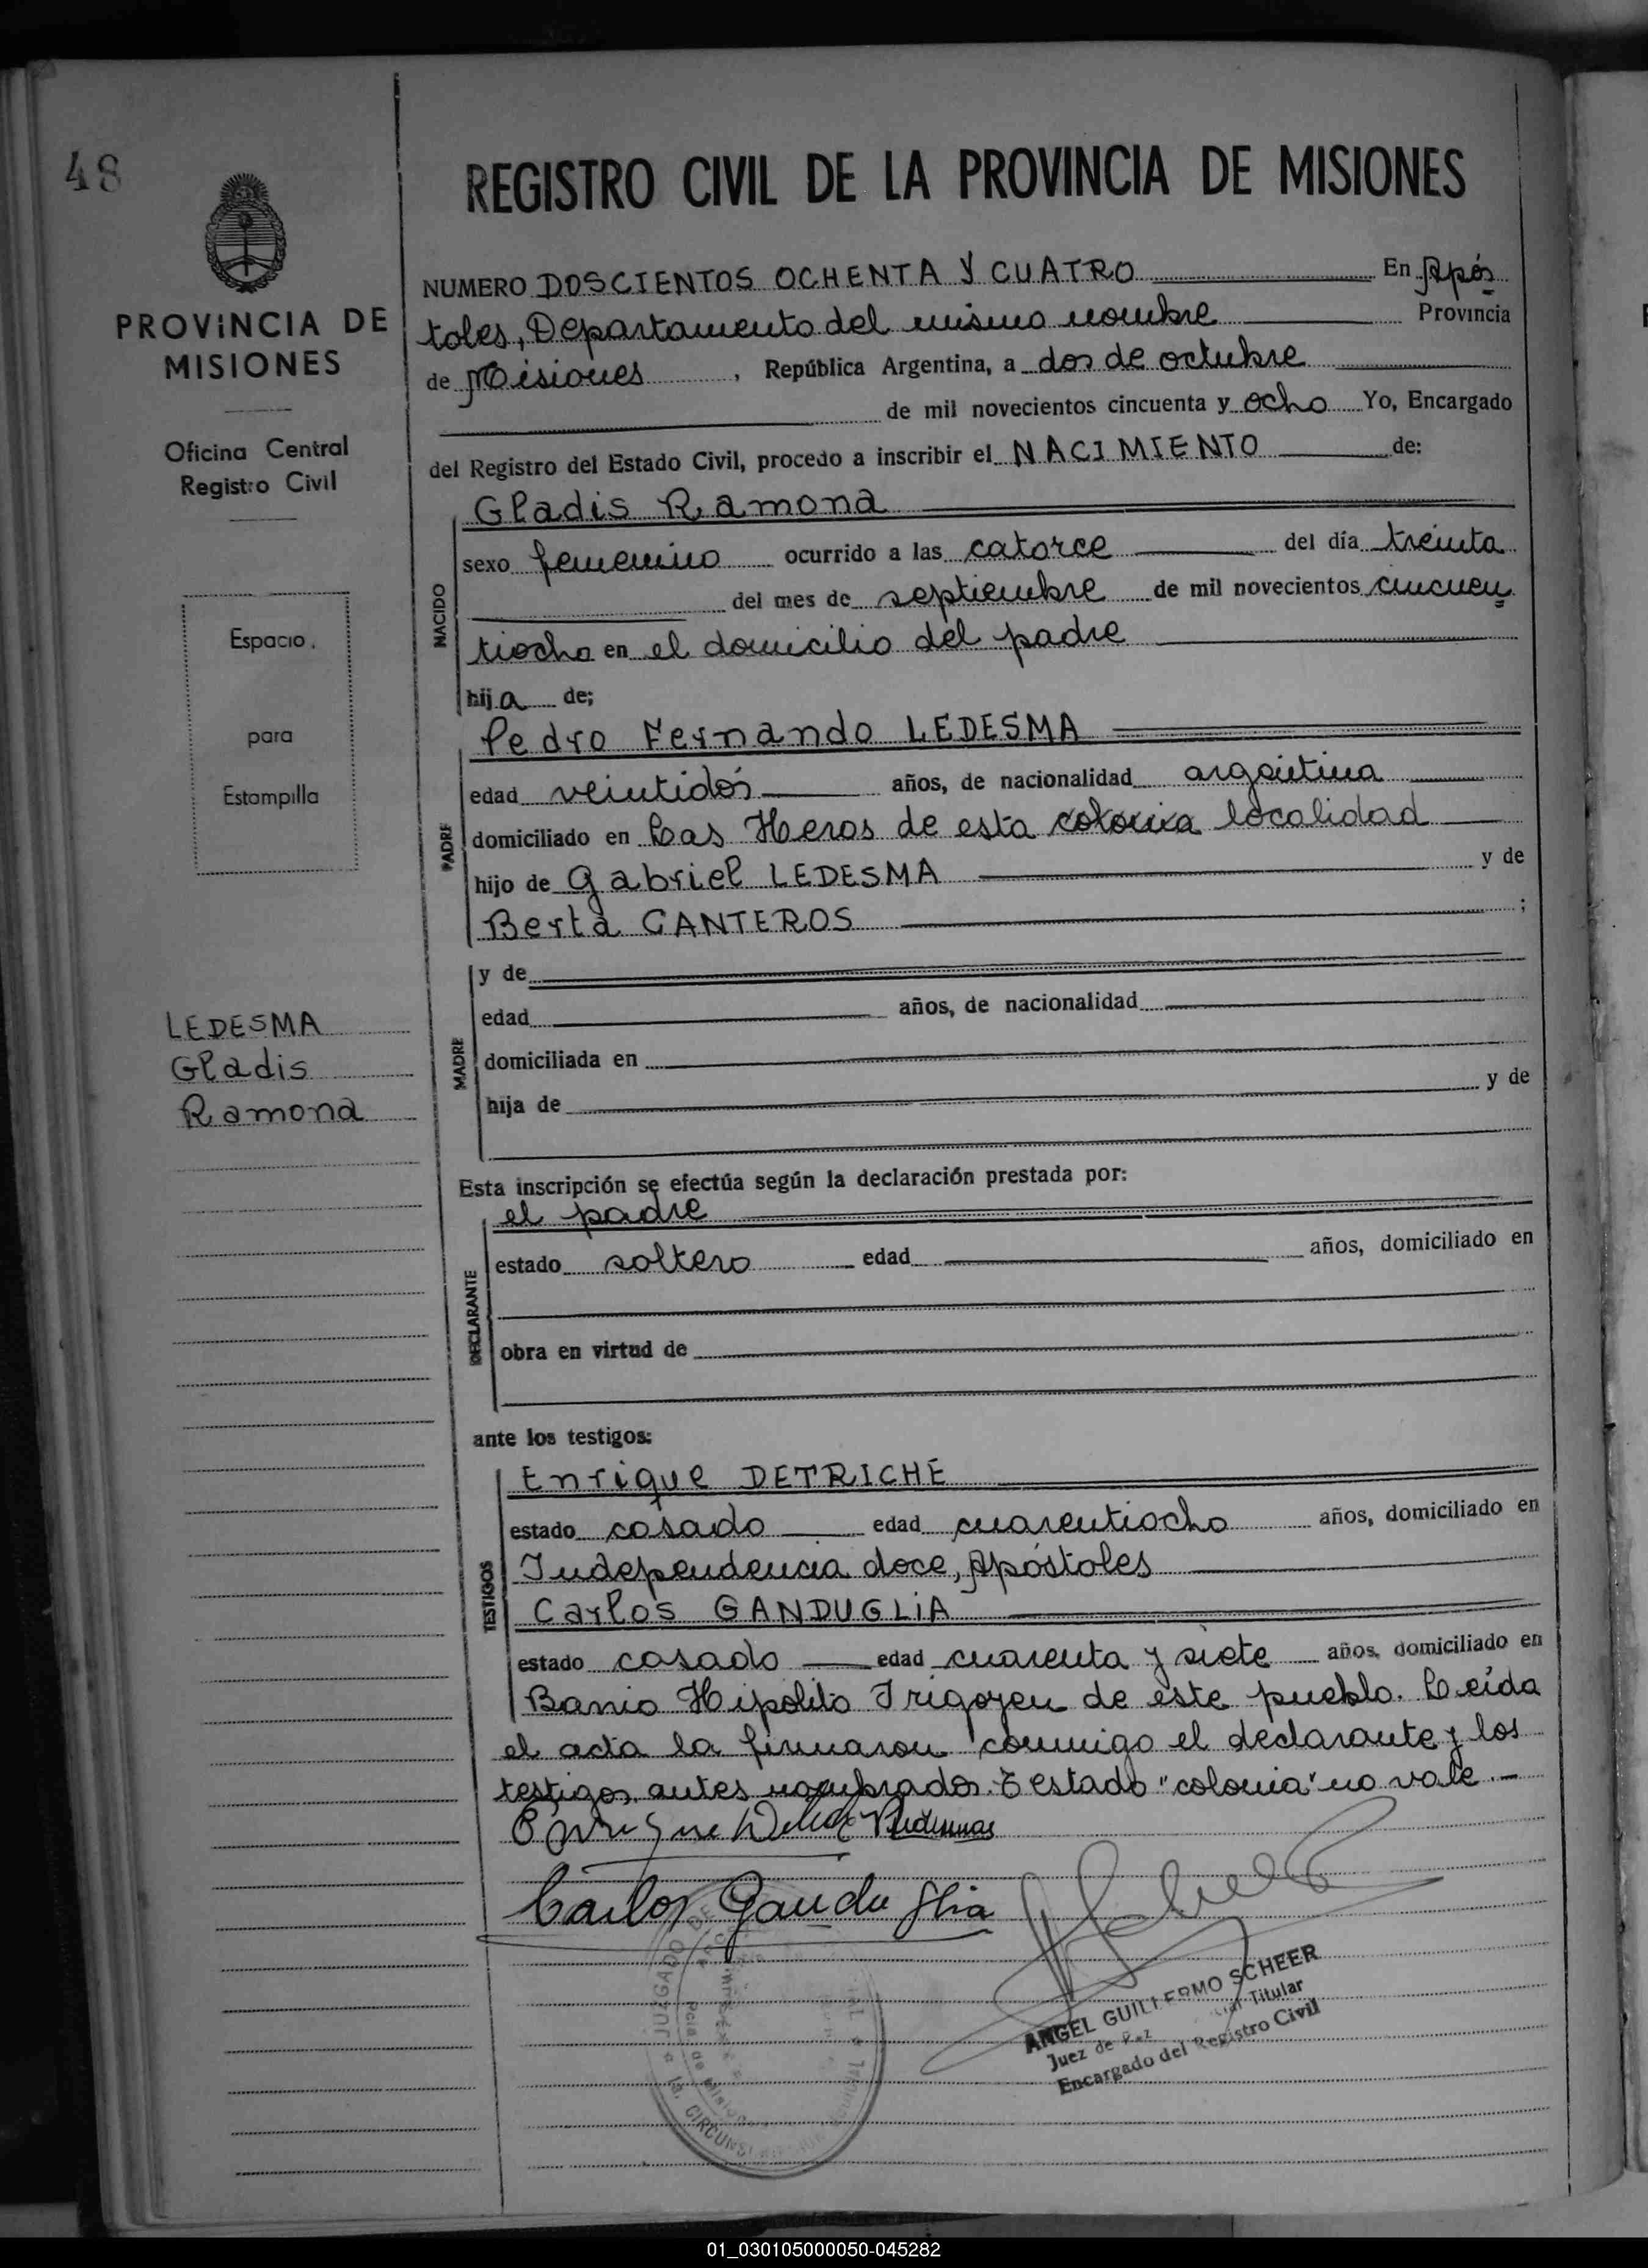 48
REGISTRO CIVIL DE LA PROVINCIA DE MISIONES
PROVINCIA DE
MISIONES
Oficina Central
Registro Civil
Espacio
para
Estampilla
LEDESMA
Gladis
Ramona
NUMERO DOSCIENTOS OCHENTA Y CUATRO En Após
toles, Departamento del mismo nombre Provincia
de Misiones, República Argentina, a dos de octubre
de mil novecientos cincuenta y ocho Yo, Encargado
del Registro del Estado Civil, procedo a inscribir el NACIMIENTO de:
NACIDO
Gladis Ramona
sexo femenino ocurrido a las catorce del día treinta
del mes de septiembre de mil novecientos cincuen
tiocho en el domicilio del padre
hija de;
PADRE
Pedro Fernando LEDESMA
edad veintidós años, de nacionalidad argentina
domiciliado en Las Heras de esta colonia localidad
hijo de Gabriel LEDESMA y de
Berta CANTEROS ;
MADRE
y de
edad años, de nacionalidad
domiciliada en
hija de y de
Esta inscripción se efectúa según la declaración prestada por:
DECLARANTE
el padre
estado soltero edad años, domiciliado en
obra en virtud de
ante los testigos:
TESTIGOS
Enrique DETRICHE
estado casado edad cuarentiocho años, domiciliado en
Independencia doce, Apóstoles
Carlos GANDUGLIA
estado casado edad cuarenta y siete años, domiciliado en
Barrio Hipólito Irigoyen de este pueblo. Leída
el acta la firmaron conmigo el declarante y los
testigos antes nombrados. Testado "colonia" no vale.-
Enrique
Carlos Ganduglia
ANGEL GUILLERMO SCHEER
Juez de Paz Titular
Encargado del Registro Civil
JUZGADO DE
CIRCUNS
01_030105000050-045282